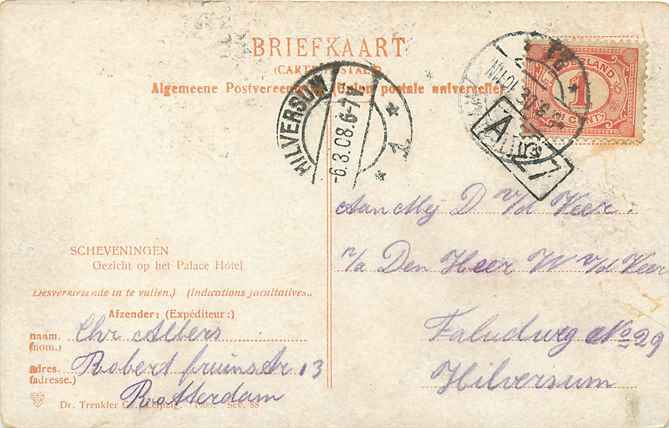 BRIEFKAART
(CARTE POSTALE)
Algemeene Postvereeniging (Union postale universelle)
HILVERSUM
-6.3.08.6-7
1
NEDERLAND
1
CENT
A
27
Aan Mej D. v/d Veer.
p/a Den Heer W v/d Veer
No 29
Hilversum
SCHEVENINGEN
Gezicht op het Palace Hôtel
(Desverkiezende in te vullen.) (Indications facultatives.)
Afzender: (Expéditeur:)
naam. Chr Albers
(nom.)
adres. Robert fruinstr 13
(adresse.)
Rotterdam
Dr. Trenkler Co., Leipzig.